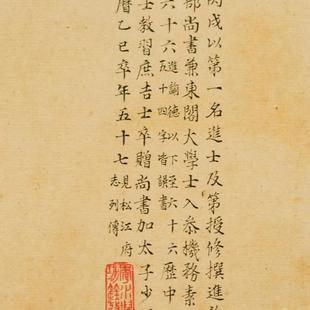 丙戌以第一名進士及第授修撰進
部尚書兼東閣大學士入參機務素
六十六進諭德以下至六十六
五十四字皆誤書
歷中
士教習庶吉士卒贈尚書加太子少
曆乙巳卒年五十七見松江府
志列傳